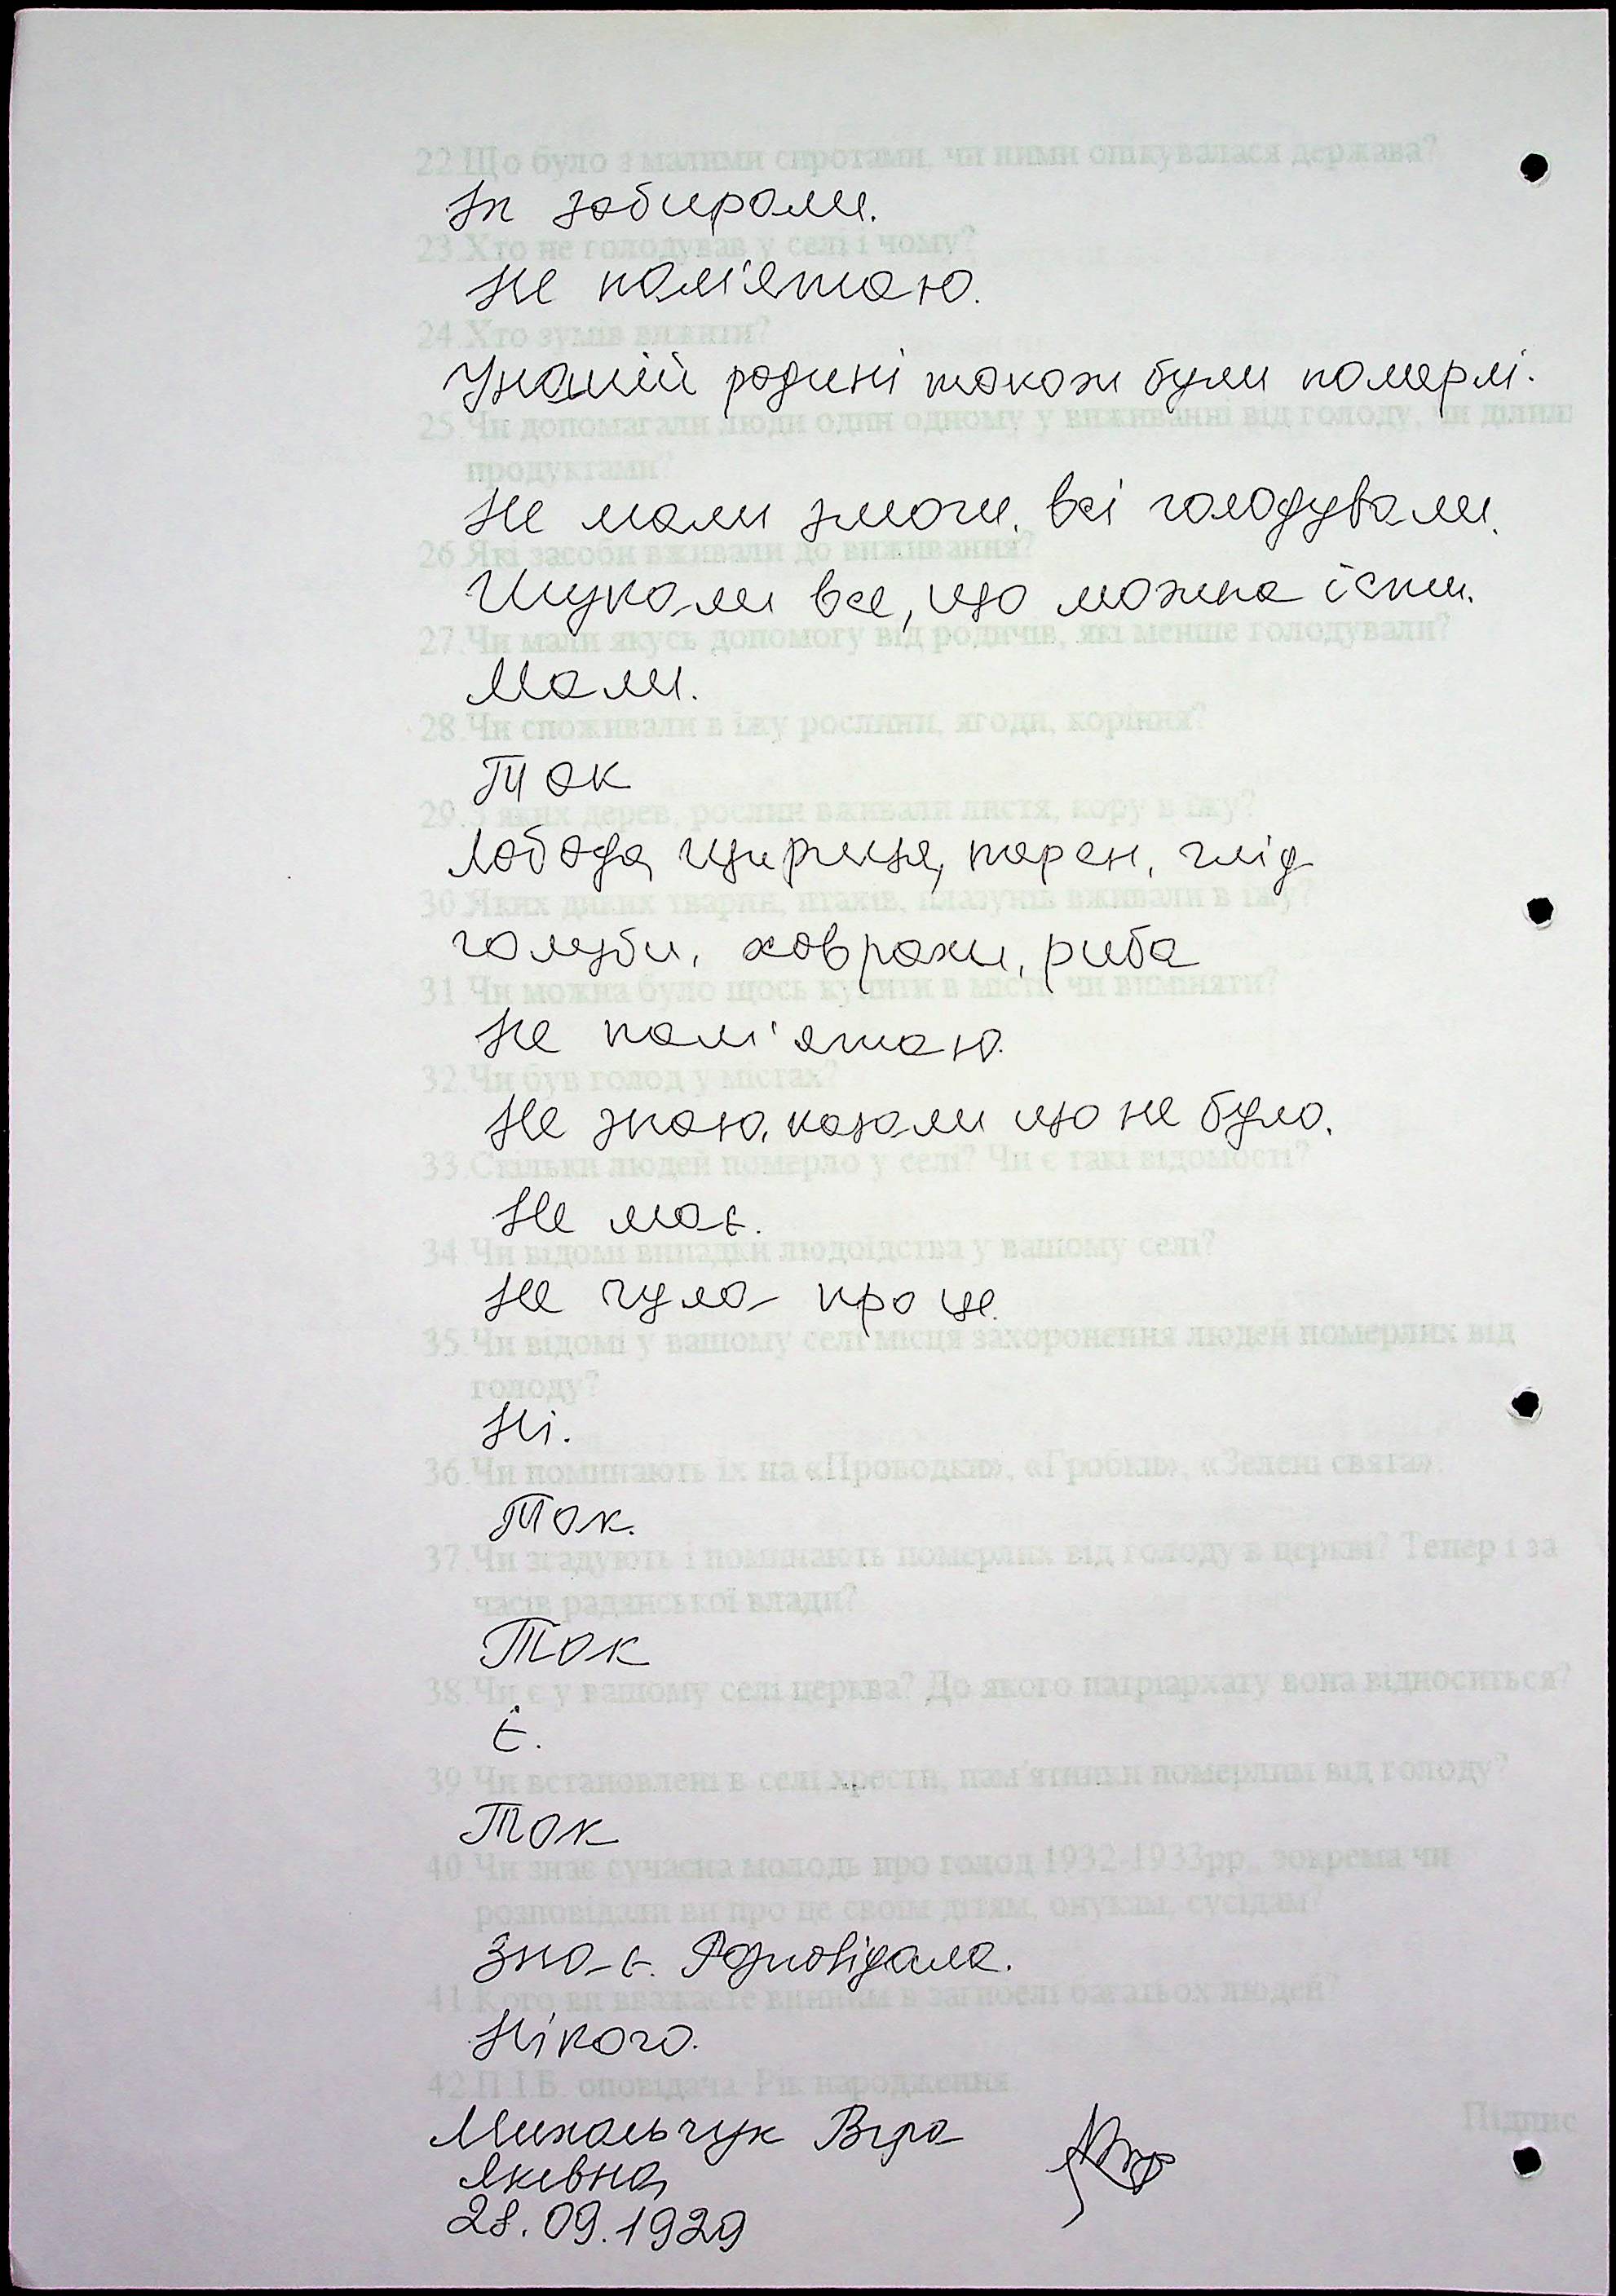 22.Що було з малими сиротами, чи ними опікувалася держава?
Їх забирали.
23.Хто не голодував у селі і чому?
Не пам'ятаю.
24.Хто зумів вижити?
У нашій родині також були померлі.
25.Чи допомагали люди один одному у виживанні від голоду, чи ділили
продуктами?
Не мали змоги, всі голодували.
26.Які засоби вживали до виживання?
Шукали все, що можна їсти.
27.Чи мали якусь допомогу від родичів, які менше голодували?
Мали.
28.Чи споживали в їжу рослини, ягоди, коріння?
Так
29.З яких дерев, рослин вживали листя, кору в їжу?
Лобода, щириця, терен, глід
30.Яких диких тварин, птахів, плазунів вживали в їжу?
голуби, ховрахи, риба
31.Чи можна було щось купити в місті чи виміняти?
Не пам'ятаю.
32.Чи був голод у містах?
Не знаю, казали що не було.
33.Скільки людей померло у селі? Чи є такі відомості?
Не має.
34.Чи відомі випадки людоїдства у вашому селі?
Не чула про це.
35.Чи відомі у вашому селі місця захоронення людей померлих від
голоду?
Ні.
36.Чи поминають їх на «Проводки», «Гробки», «Зелені свята».
Так.
37.Чи згадують і поминають померлих від голоду в церкві? Тепер і за
часів радянської влади?
Так
38.Чи є у вашому селі церква? До якого патріархату вона відноситься?
Є.
39.Чи встановлені в селі хрести, пам'ятники померлим від голоду?
Так
40.Чи знає сучасна молодь про голод 1932-1933рр., зокрема чи
розповідали ви про це своїм дітям, онукам, сусідам?
Знає. Розповідала.
41.Кого ви вважаєте винним в загибелі багатьох людей?
Нікого.
42.П.І.Б. оповідача. Рік народження.
Підпис
Михальчук Віра
Яківна
28.09.1929